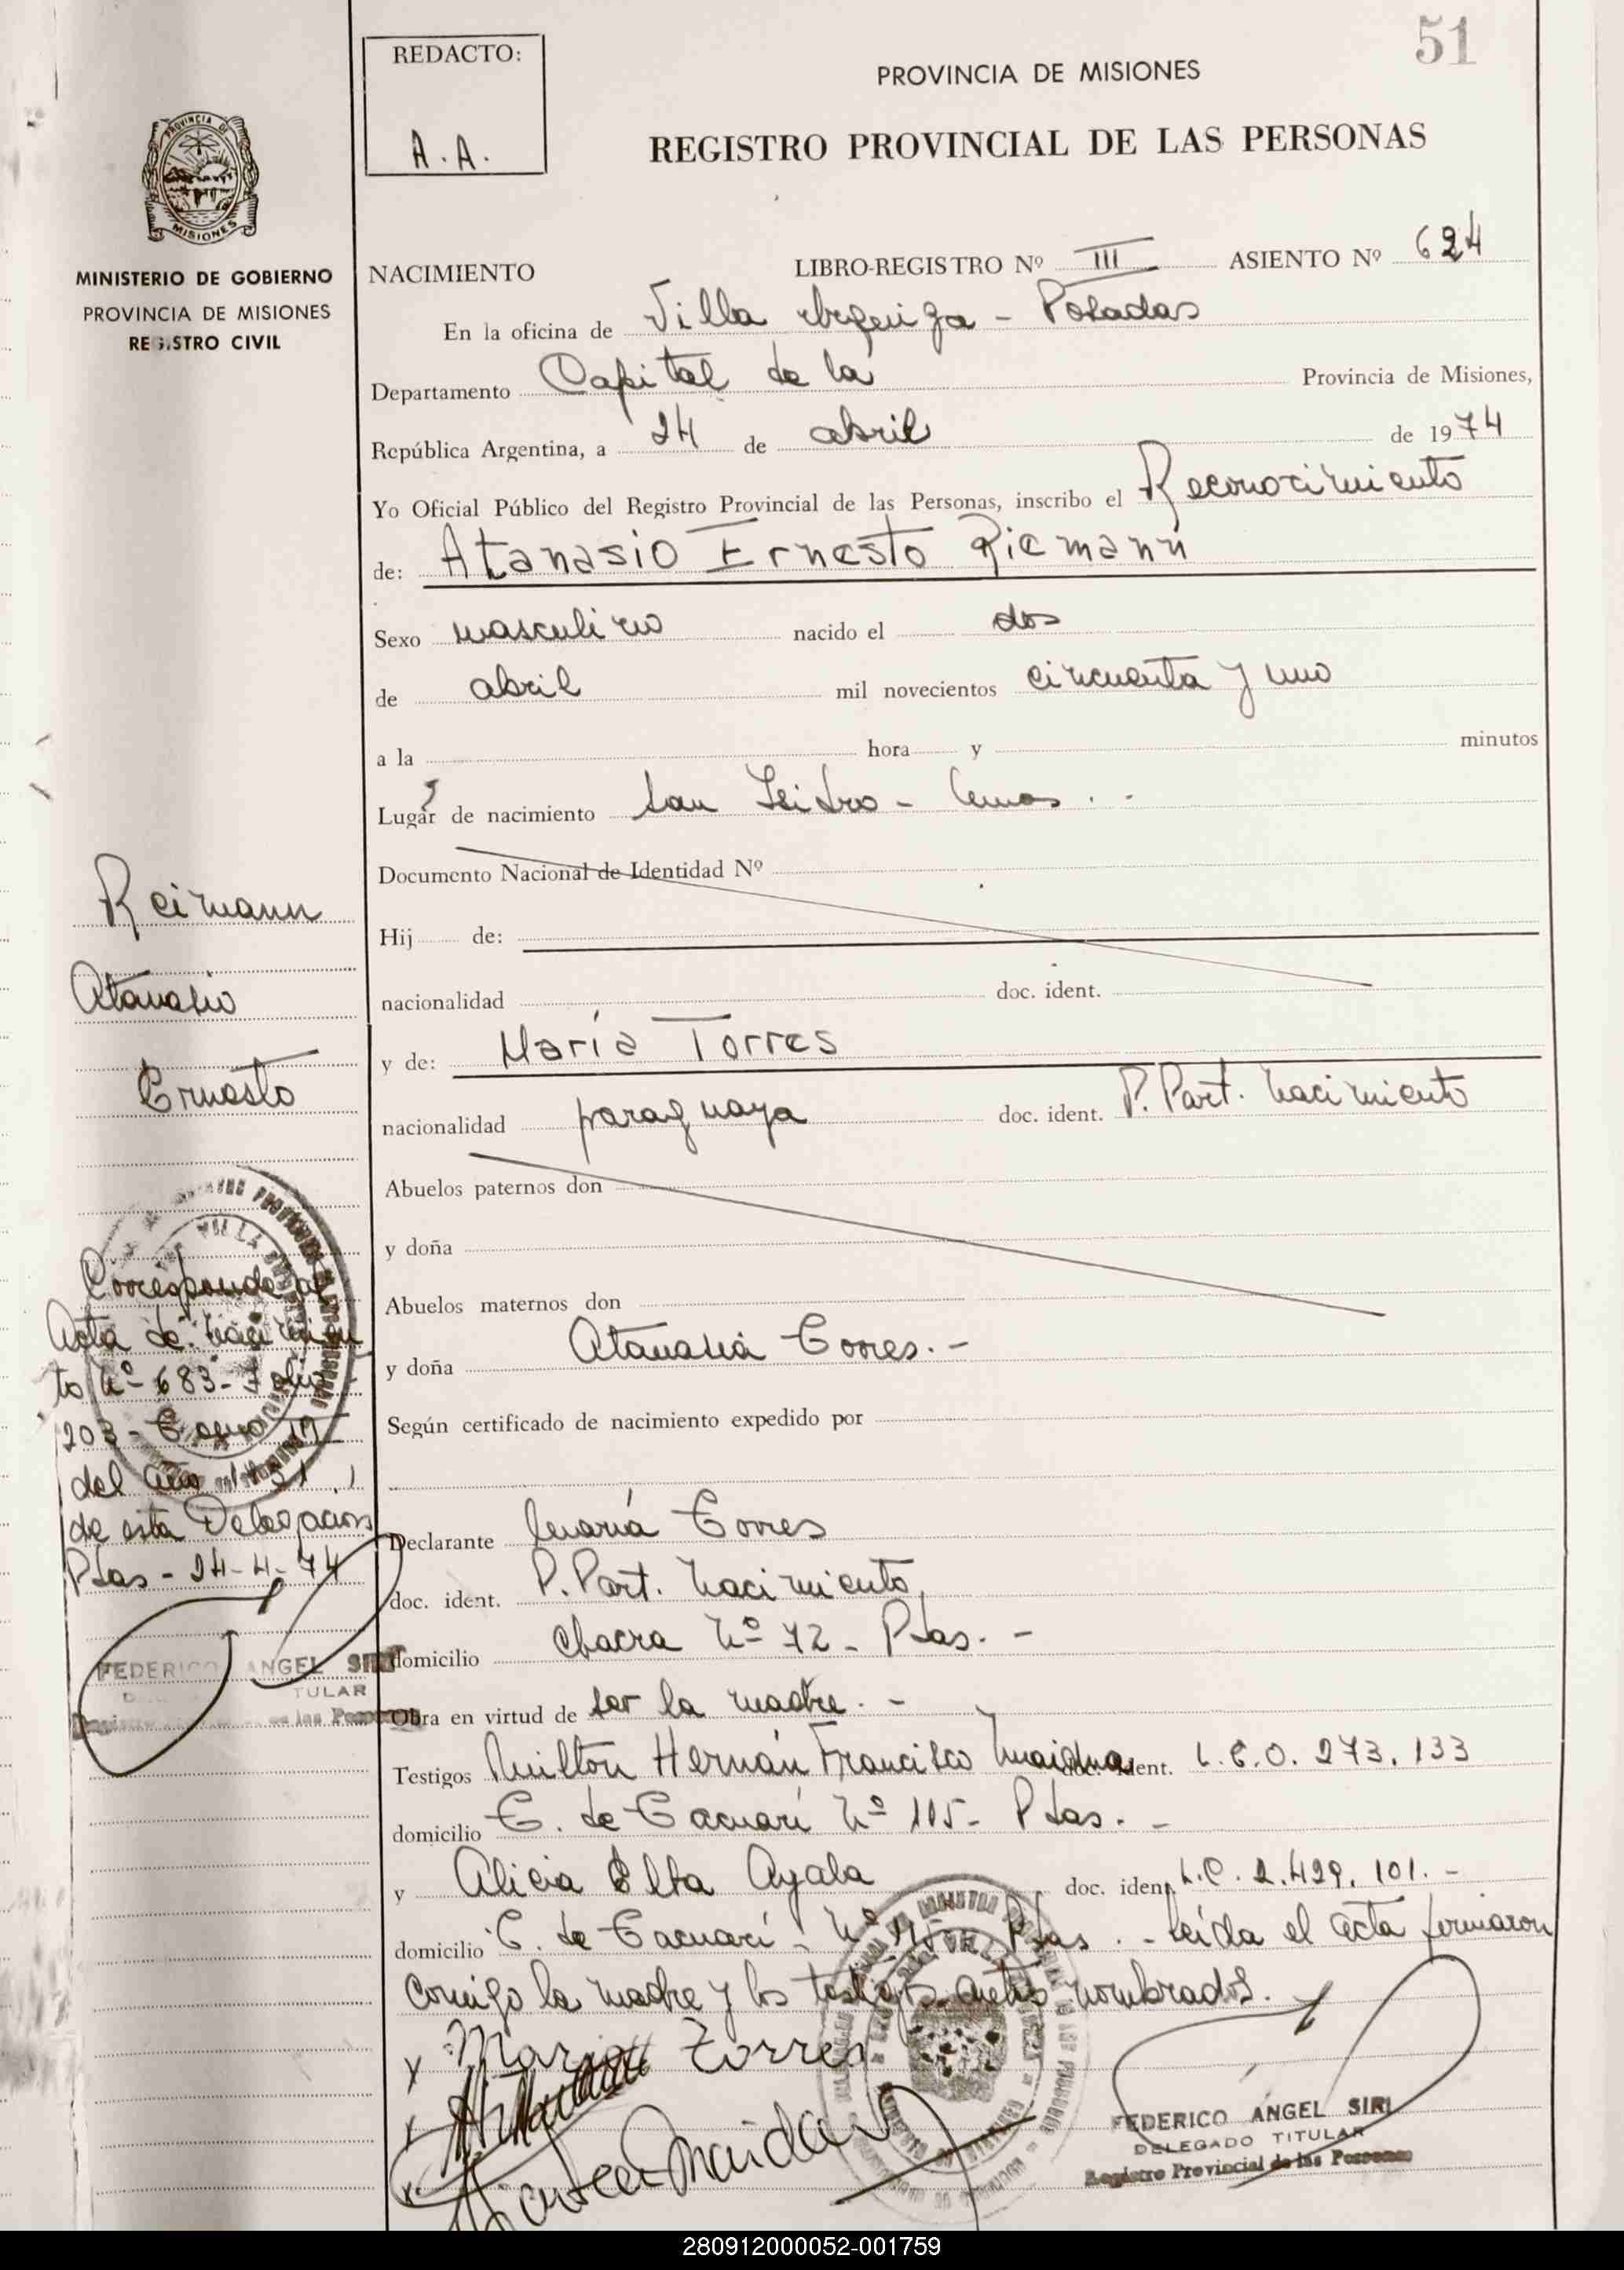 51
REDACTO:
A.A.
PROVINCIA DE MISIONES
REGISTRO PROVINCIAL DE LAS PERSONAS
PROVINCIA DE
MISIONES
MINISTERIO DE GOBIERNO
PROVINCIA DE MISIONES
REGISTRO CIVIL
NACIMIENTO LIBRO-REGISTRO Nº III ASIENTO Nº 624
En la oficina de Villa Urquiza - Posadas
Departamento Capital de la Provincia de Misiones,
República Argentina, a 24 de abril de 1974
Yo Oficial Público del Registro Provincial de las Personas, inscribo el Reconocimiento
de: Atanasio Ernesto Riemann
Sexo masculino nacido el dos
de abril mil novecientos cincuenta y uno
a la hora y minutos
Lugar de nacimiento San Isidro -
Documento Nacional de Identidad Nº
Hij de:
nacionalidad doc. ident.
y de: María Torres
nacionalidad paraguaya doc. ident. P. Part. Nacimiento
Abuelos paternos don
y doña
Abuelos maternos don
y doña Atanasia Torres.-
Según certificado de nacimiento expedido por
Declarante María Torres
doc. ident. P. Part. Nacimiento
domicilio Chacra Nº 72 - Pdas. -
Obra en virtud de ser la madre. -
Testigos Milton Hernán Francisco Maidana doc. ident. L.E.0.273.133
domicilio T. de Tacuarí Nº 115 - Pdas. -
y Alicia Elba Ayala doc. ident. L.C.2.429.101.-
domicilio T. de Tacuarí - Nº 115 - Pdas. - Leída el acta firmaron
conmigo la madre y los testigos antes nombrados.
Maria Torres
FEDERICO ÁNGEL SIRI
DELEGADO TITULAR
Registro Provincial de las Personas
Reimann
Atanasio
Ernesto
Corresponde al
Acta de nacimien
to Nº 683 - Folio
203 - Tomo
del año 1951
de esta Delegación
Pdas - 24-4-74
FEDERICO ANGEL SIRI
TITULAR
280912000052-001759